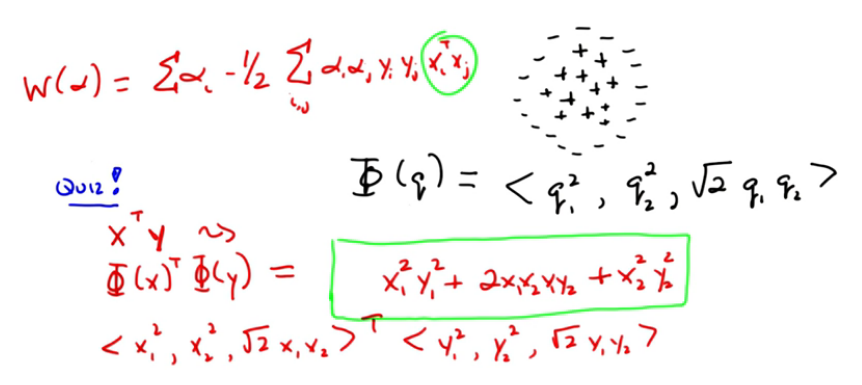 W(α) = Σαᵢ - 1/2 Σᵢ,ⱼ αᵢαⱼ yᵢ yⱼ xᵢᵀxⱼ
Φ(q) = < q₁², q₂², √2 q₁ q₂ >
Quiz!
xᵀy ⇝
Φ(x)ᵀ Φ(y) = x₁²y₁² + 2x₁x₂xy₂ + x₂²y₂²
< x₁², x₂², √2 x₁ x₂ >ᵀ < y₁², y₂², √2 y₁ y₂ >